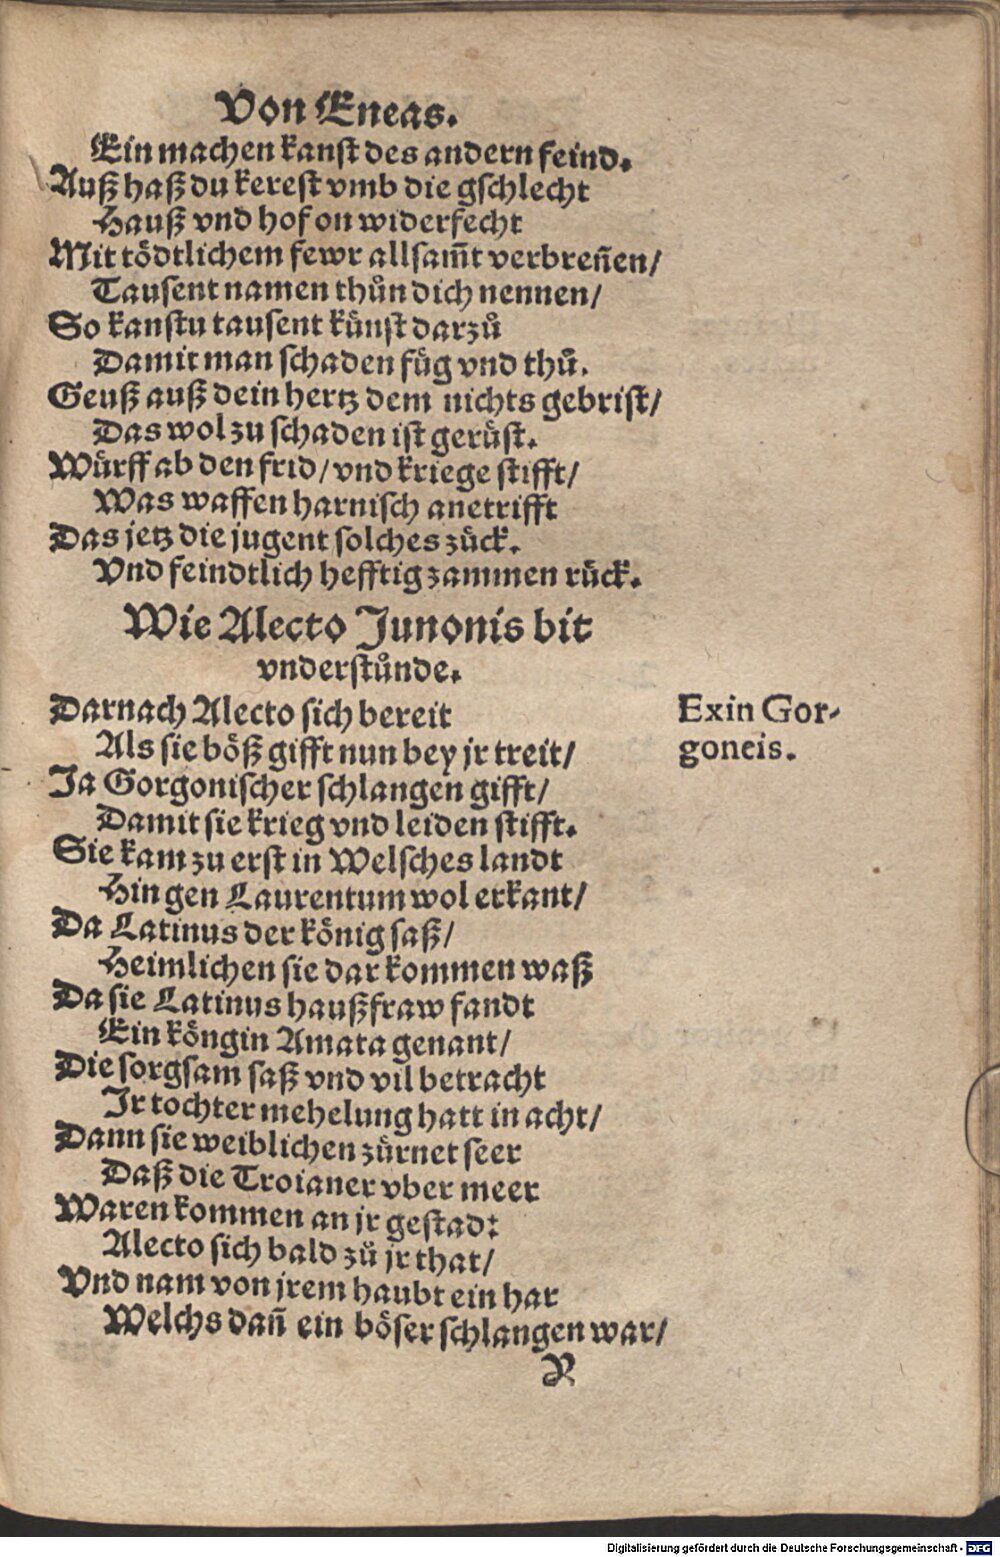 Von Eneas.
Ein machen kanst des andern feind.
Auß haß du kerest vmb die gschlecht
Hauß vnd hof on widerfecht
Mit tödtlichem fewr allsam̄t verbren̄en/
Tausent namen thůn dich nennen/
So kanstu tausent künst darzů
Damit man schaden füg vnd thů.
Geuß auß dein hertz dem nichts gebrist/
Das wol zu schaden ist gerüst.
Würff ab den frid/ vnd kriege stifft/
Was waffen harnisch anetrifft
Das jetz die jugent solches zück.
Vnd feindtlich hefftig zammen rück.
Wie Alecto Junonis bit
vnderstůnde.
Darnach Alecto sich bereit
Als sie böß gifft nun bey jr treit/
Ja Gorgonischer schlangen gifft/
Damit sie krieg vnd leiden stifft.
Sie kam zu erst in Welsches landt
Hin gen Laurentum wol erkant/
Da Latinus der könig saß/
Heimlichen sie dar kommen waß
Da sie Latinus haußfraw fandt
Ein köngin Amata genant/
Die sorgsam saß vnd vil betracht
Jr tochter mehelung hatt in acht/
Dann sie weiblichen zürnet seer
Daß die Troianer vber meer
Waren kommen an jr gestad:
Alecto sich bald zů jr that/
Vnd nam von jrem haubt ein har
Welchs dan̄ ein böser schlangen war/
R
Exin Gor-
goneis.
Digitalisierung gefördert durch die Deutsche Forschungsgemeinschaft - DFG